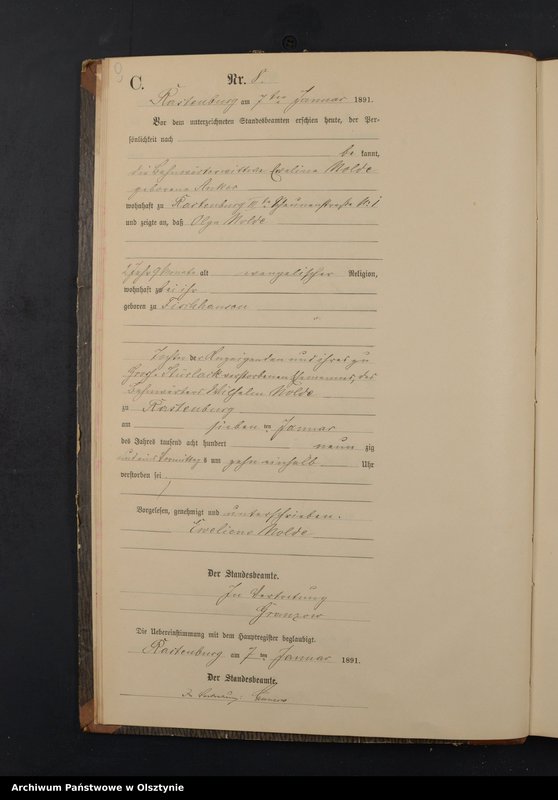 C.
Nr. 8.
Rastenburg am 7ten Januar 1891.
Vor dem unterzeichneten Standesbeamten erschien heute, der Per-
sönlichkeit nach
be kannt,
die Bahnwärterwittwe Eveliene Molde
geborene Anker
wohnhaft zu Rastenburg Scheunenstraße Nr. 1
und zeigte an, daß Olga Molde
9 Monate alt evangelischer Religion,
wohnhaft zu bei ihr
geboren zu Fischhausen
Tochter der Anzeigenden und ihres zu
Groß Stürlack verstorbenen Ehemannes, des
Bahnwärters Wilhelm Molde
zu Rastenburg
am sieben ten Januar
des Jahres tausend acht hundert neun zig
und eins Vormittags um zehn einhalb Uhr
verstorben sei
Vorgelesen, genehmigt und unterschrieben.
Eveliene Molde
Der Standesbeamte.
In Vertretung
Granzow
Die Uebereinstimmung mit dem Hauptregister beglaubigt.
Rastenburg am 7ten Januar 1891.
Der Standesbeamte.
In Vertretung: Granzow
Archiwum Państwowe w Olsztynie